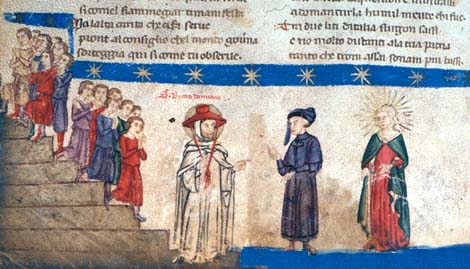 si comel fiammeggiar timanifesti
lalta carita che ci fa serue
pronti al consiglio chel mondo gouna
sorteggia qui si come tu obserue.
a domandarla humilmente chi fue
due liti ditalia surgon sass
e no molto distanti ala tua patria
tanto che troni assai sonam piu bass
S. Pietro damiano